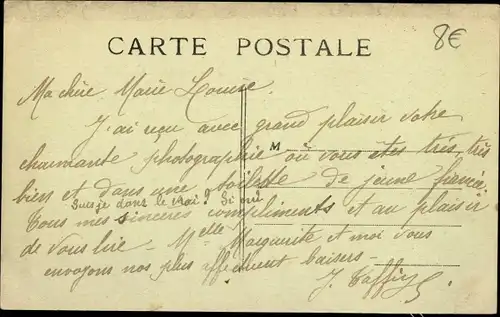 CARTE POSTALE
8€
Ma chère Marie Louise.
J'ai reçu avec grand plaisir votre
M
charmante photographie où vous êtes très très
bien et dans une toilette de jeune fiancée.
Suis je dans le vrai? Si oui
Tous mes sincères compliments et au plaisir
de vous lire - Melle Marguerite et moi vous
envoyons nos plus affectueux baisers -